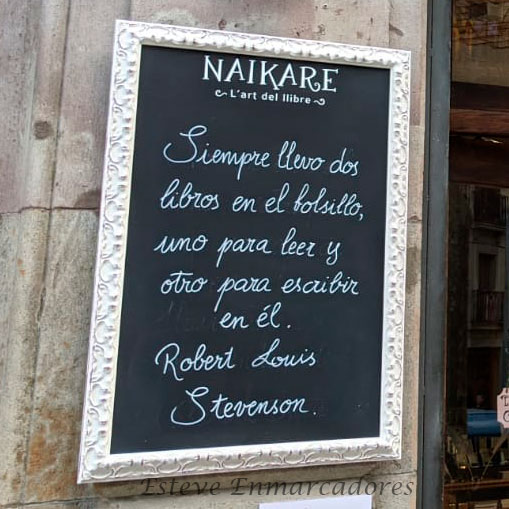 NAIKARE
L'art del llibre
Siempre llevo dos
libros en el bolsillo,
uno para leer y
otro para escribir
en él.
Robert Louis
Stevenson.
Esteve Enmarcadores